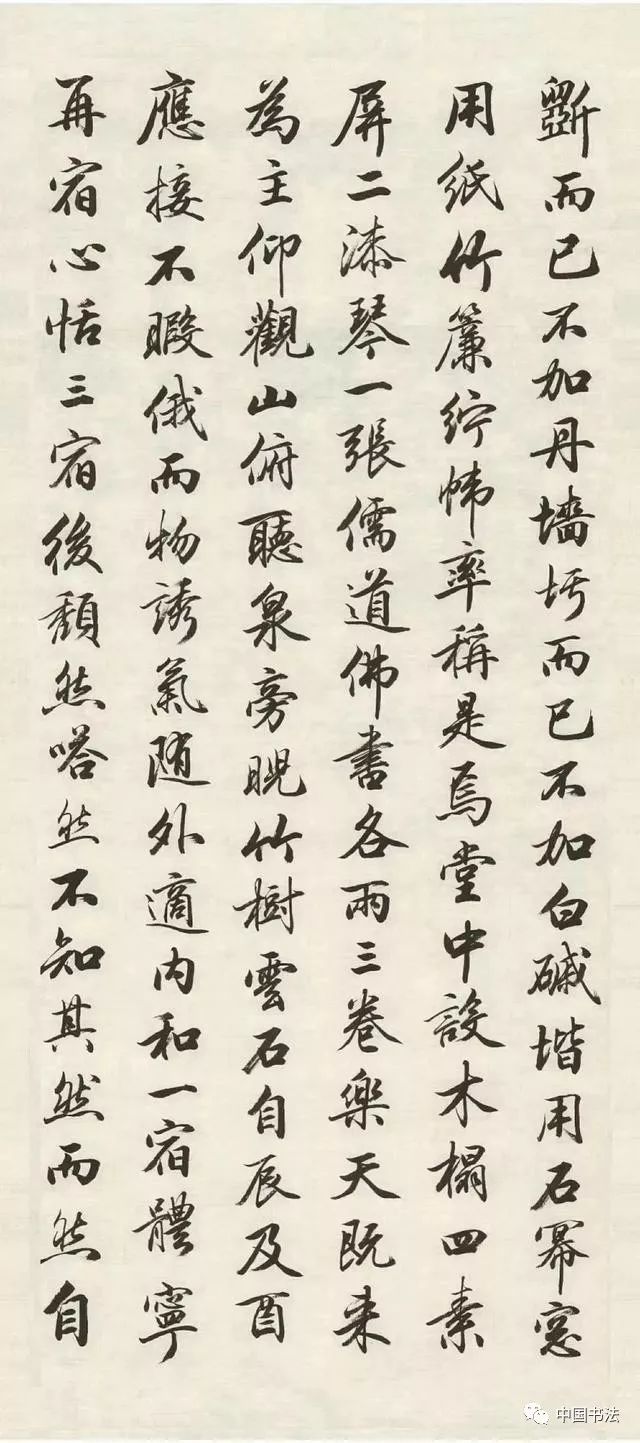 斵而已不加丹墻圬而已不加白碱堦用石冪窓
用紙竹簾紵幃率稱是焉堂中設木榻四素
屏二漆琴一張儒道佛書各兩三卷樂天既来
為主仰觀山俯聽泉旁睨竹樹雲石自辰及酉
應接不暇俄而物誘氣随外適内和一宿體寧
再宿心恬三宿後頹然嗒然不知其然而然自
中国书法